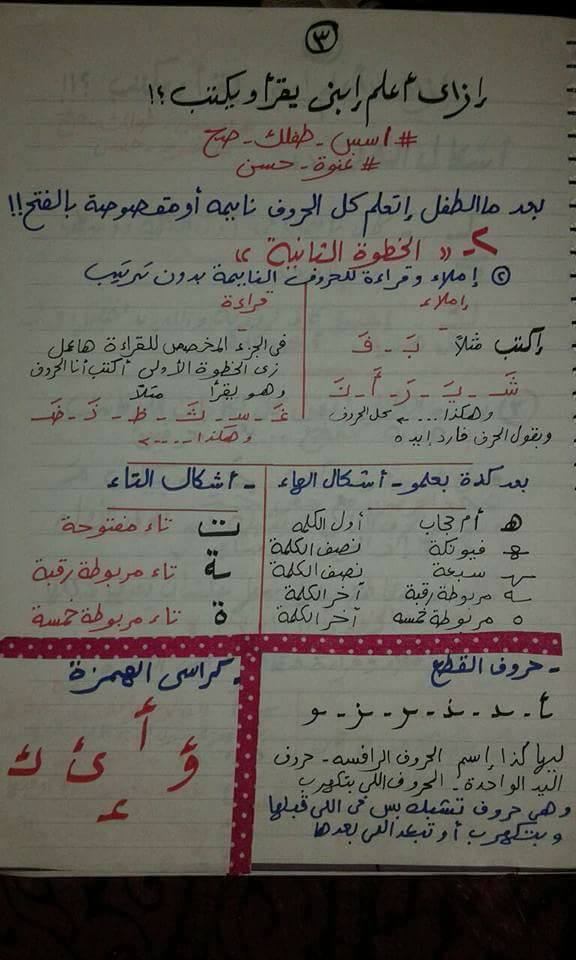 ٣
إزاى أعلم إبنى يقرأ ويكتب؟!
#اسس_طفلك_صح
#غنوة_حسن
بعد ما الطفل إتعلم كل الحروف نايمه أو مقصوصة بالفتح!!
٢- " الخطوة الثانية "
إملاء وقراءة للحروف النايمة بدون ترتيب
إملاء
إكتب مثلاً بَ - فَ
وهكذا ....
ويقول الحرف فارد إيده
قراءة
فى الجزء المخصص للقراءة هاعمل
زى الخطوة الأولى أكتب أنا الحروف
وهو يقرأ مثلاً
غَ - سَ - ثَ - ظَ - ذَ - ضَ
وهكذا ....
بعد كدة بعلمو - أشكال الهاء
هـ أم حجاب أول الكلمه
ـهـ فيونكة نصف الكلمة
ـهـ سبعة نصف الكلمة
ـه مربوطة رقبة آخر الكلمة
ه مربوطة خمسه آخر الكلمة
- أشكال التاء
ت تاء مفتوحة
ـة تاء مربوطة رقبة
ة تاء مربوطة خمسة
- حروف القطع
أ - د - ذ - ر - ز - و
ليها كذا إسم الحروف الرافسه - حروف
اليد الواحدة - الحروف اللى بتكهرب
وهى حروف تشبك بس فى اللى قبلها
وبتكهرب أو تبعد اللى بعدها
- كراسى الهمزة
ؤ أ ئ ك
ء